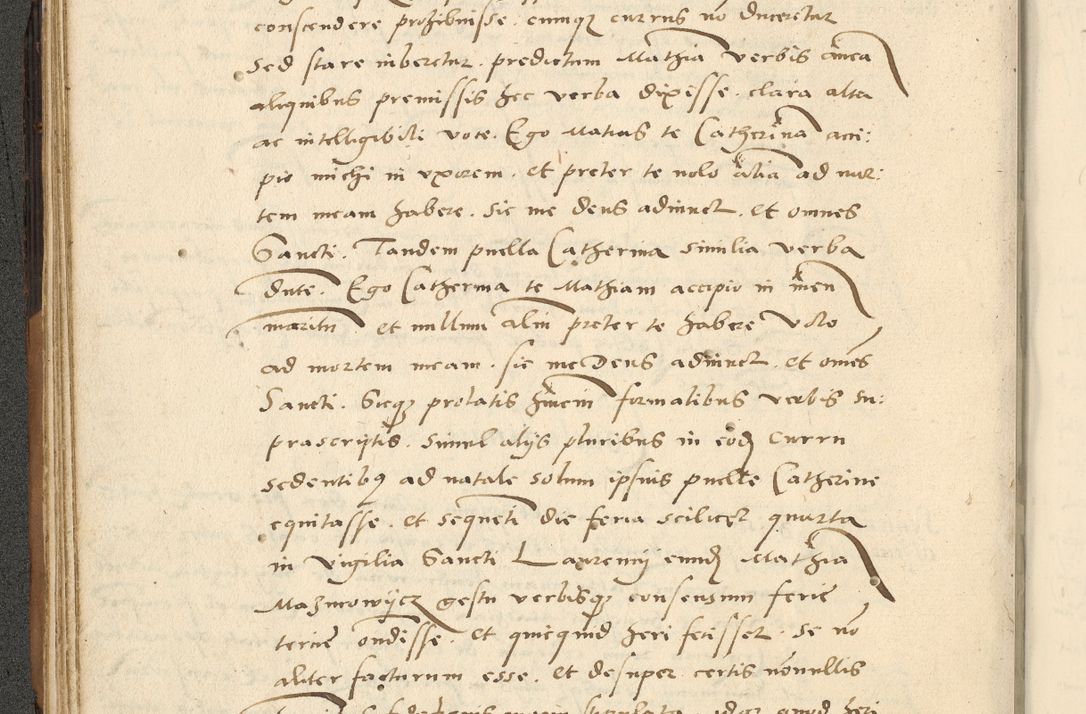 conscendere prohibuisse. cumq currus no duceretur
sed stare iuberetur. predictum Mathia verbis cinca
aliquibus premissis hec verba dixisse. clara alta
ac intelligibili voce. Ego Matias te Catherina acci:
pio michi in vxorem. et preter te nolo alia ad mor:
tem meam habere. sic me deus adiuuet. et omnes
Sancti. Tandem puella Catherina similia verba
dixte. Ego Catherina te Mathiam accipio in meu
maritu. et nullum aliu preter te habere volo
ad mortem meam. sic me Deus adiuuet. et omes
Sancti. Sicq prolatis hmoi formalibus verbis su:
prascriptis. simul alijs pluribus in eod curru
sedentibq ad natale solum ipsius puelle Catherine
equitasse. et sequeti die feria scilicet quarta
in vigilia Sancti Laurentij eund Mathia
Mazurowijcz gestu verbisq consensum ferie
tercie ondisse. et quicquid heri fecisset. se no
aliter facturum esse. et desuper certis nonnullis